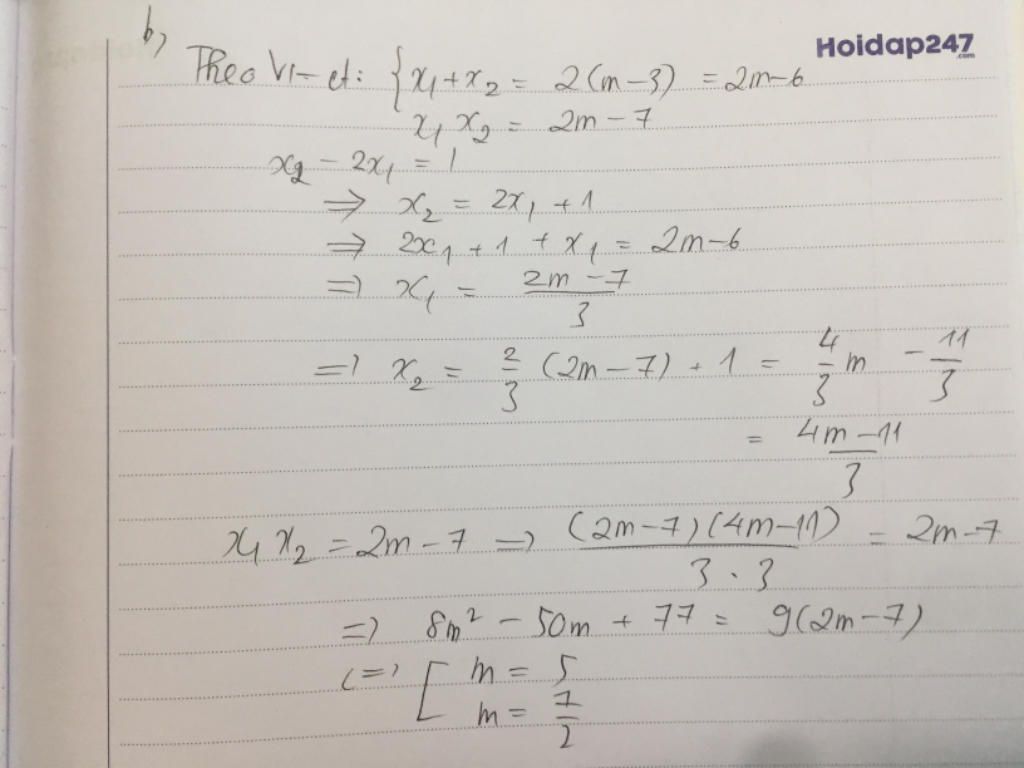 b)
Hoidap247
.com
Theo Vi-et: { x₁ + x₂ = 2(m-3) = 2m-6
x₁ x₂ = 2m - 7
x₂ - 2x₁ = 1
⇒ x₂ = 2x₁ + 1
⇒ 2x₁ + 1 + x₁ = 2m-6
⇒ x₁ = (2m-7)/3
⇒ x₂ = 2/3 (2m-7) + 1 = 4/3 m - 11/3
= (4m-11)/3
x₁ x₂ = 2m-7 ⇒ (2m-7)(4m-11)/(3.3) = 2m-7
⇒ 8m² - 50m + 77 = 9(2m-7)
⇔ [ m = 5
m = 7/2